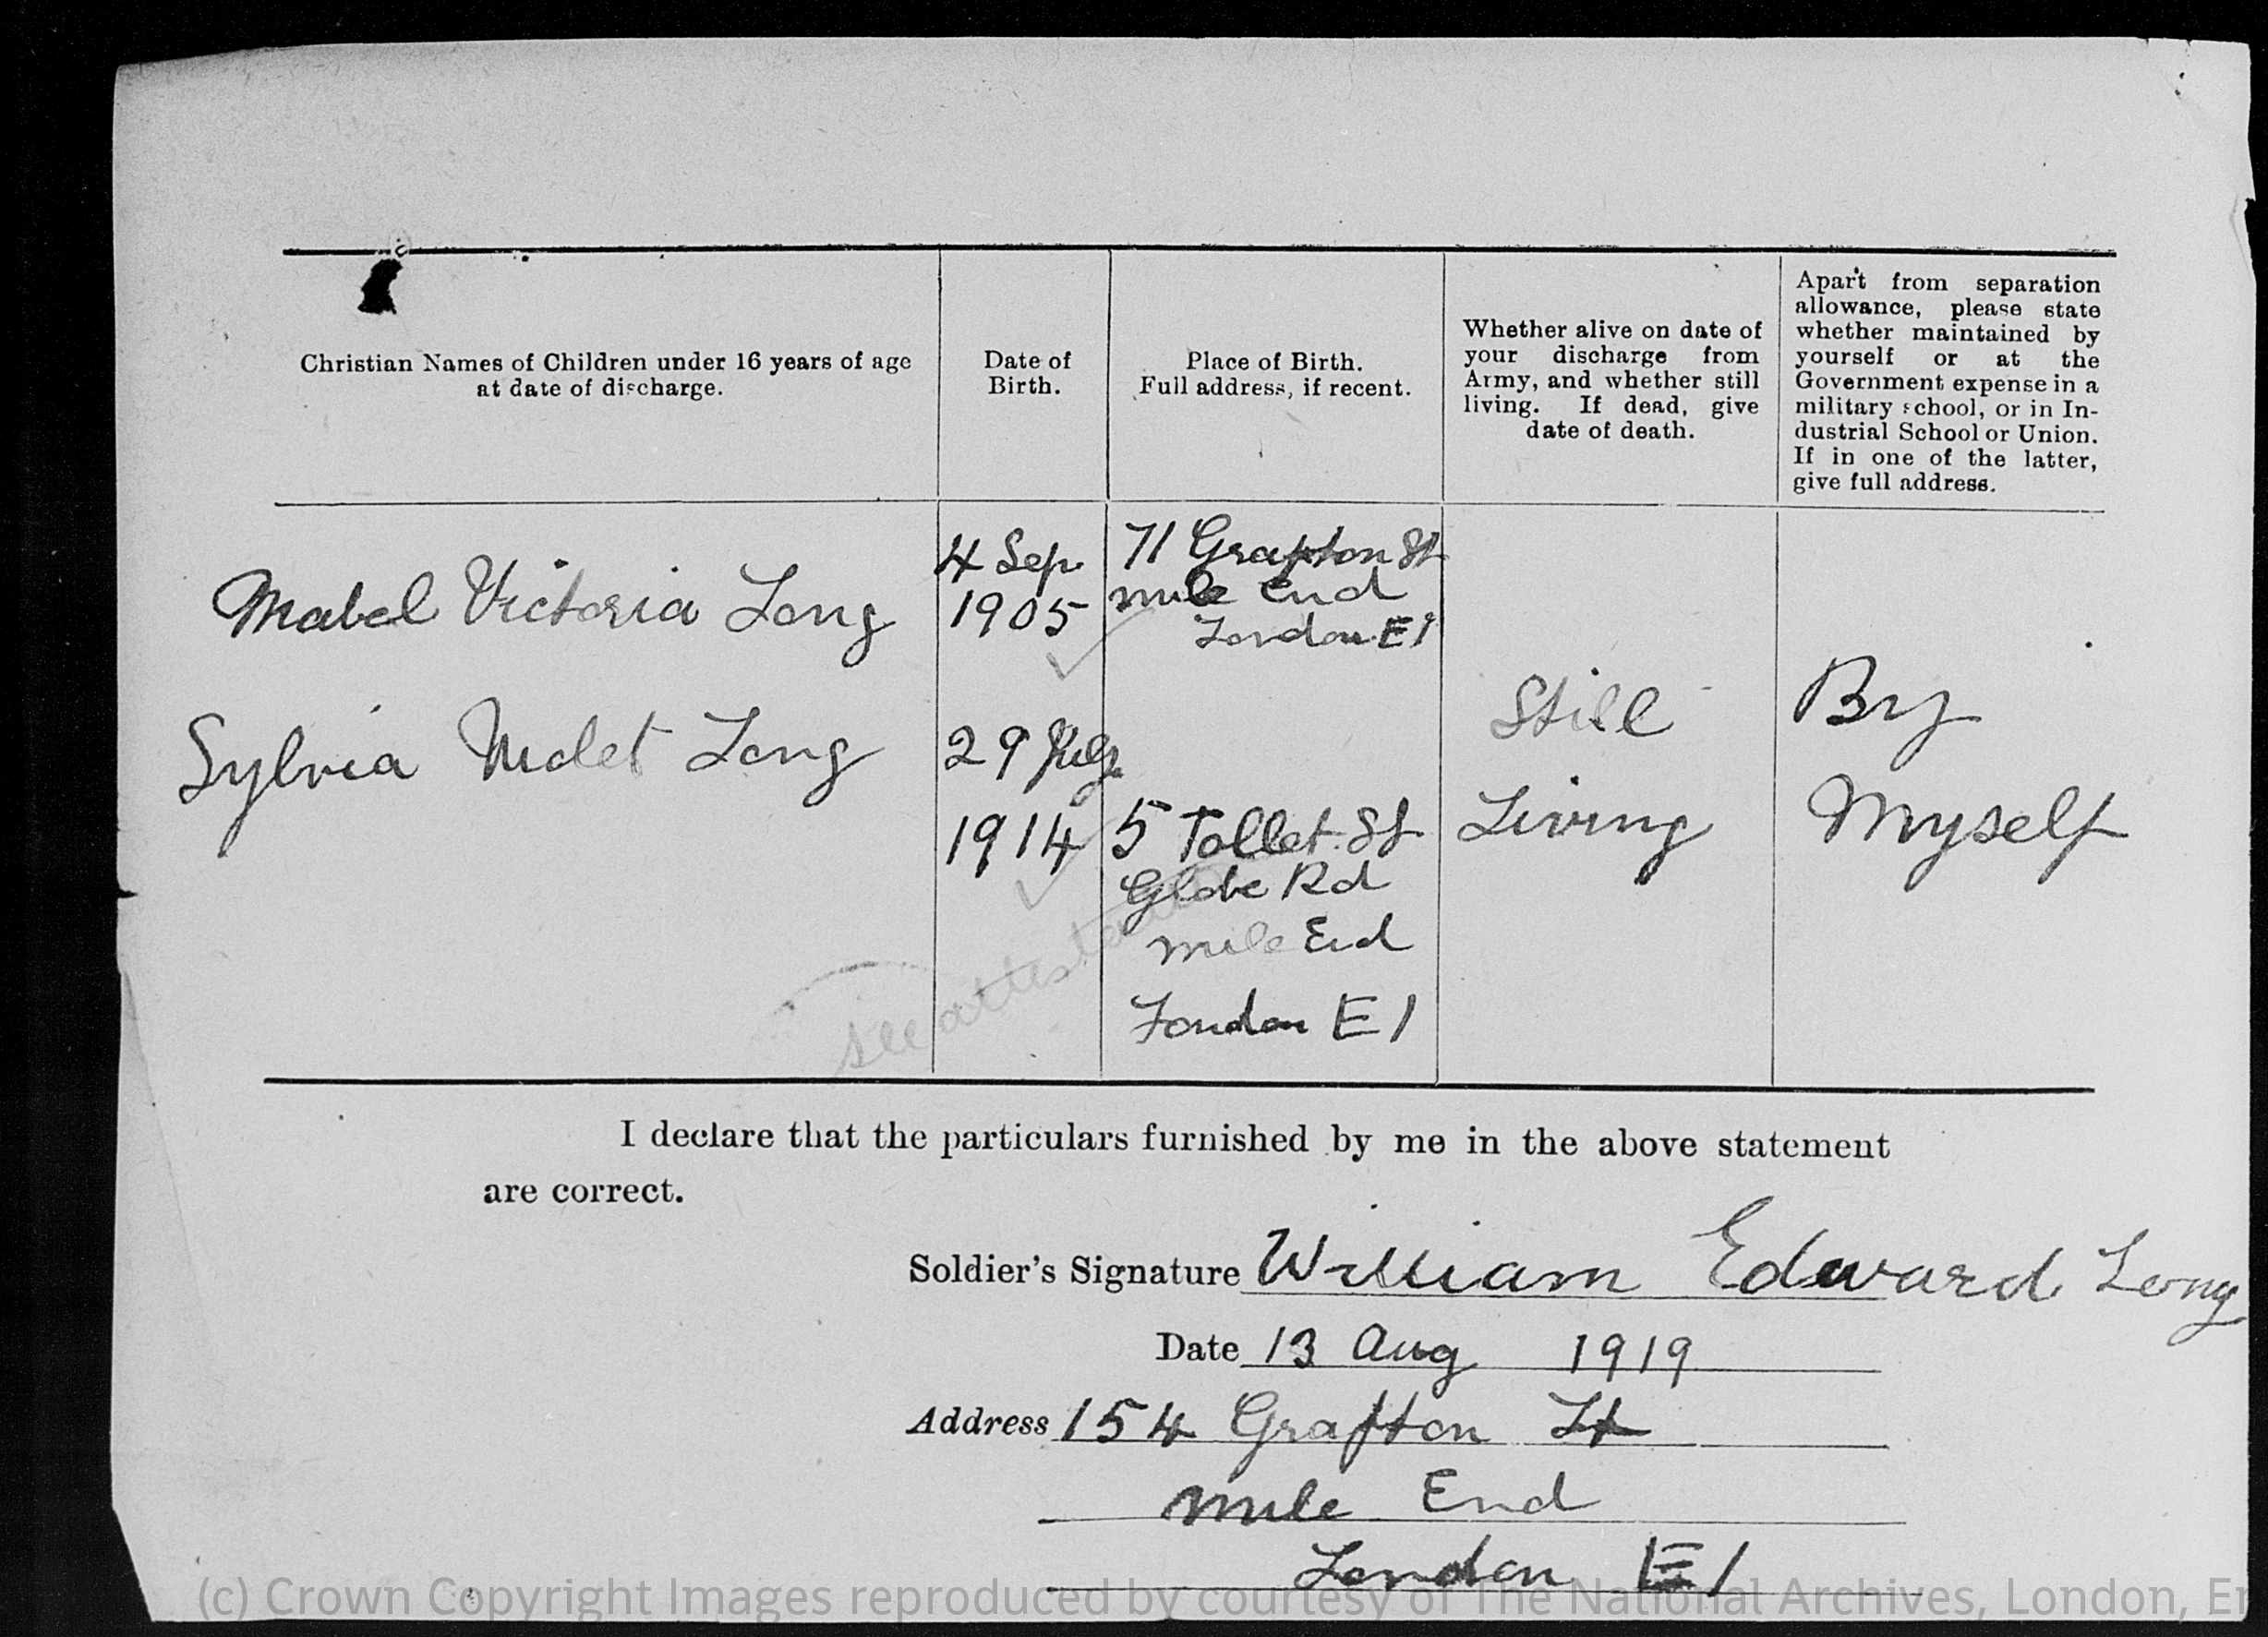 Christian Names of Children under 16 years of age
at date of discharge.
Date of
Birth.
Place of Birth.
Full address, if recent.
Whether alive on date of
your discharge from
Army, and whether still
living. If dead, give
date of death.
Apart from separation
allowance, please state
whether maintained by
yourself or at the
Government expense in a
military school, or in In-
dustrial School or Union.
If in one of the latter,
give full address.
Mabel Victoria Long
4 Sep.
1905
71 Grafton St
mile End
London E1
Sylvia Violet Long
29 July
1914
5 Tollet St
Globe Rd
mile End
London E1
Still
Living
By
Myself
see attestation
I declare that the particulars furnished by me in the above statement
are correct.
Soldier's Signature William Edward Long
Date 13 Aug 1919
Address 154 Grafton St
mile End
London E1
(c) Crown Copyright Images reproduced by courtesy of The National Archives, London, En